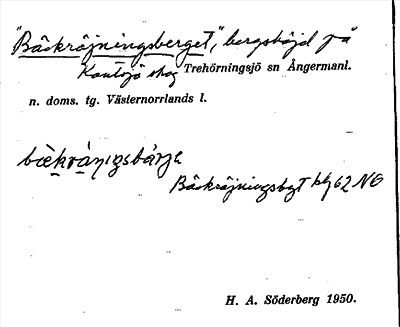 "Bäckröjningsberget", bergshöjd på
Kantsjö skog Trehörningsjö sn Ångermanl.
n. doms. tg. Västernorrlands l.
Bäckröjningsbgt kbl 62 NO
H. A. Söderberg 1950.